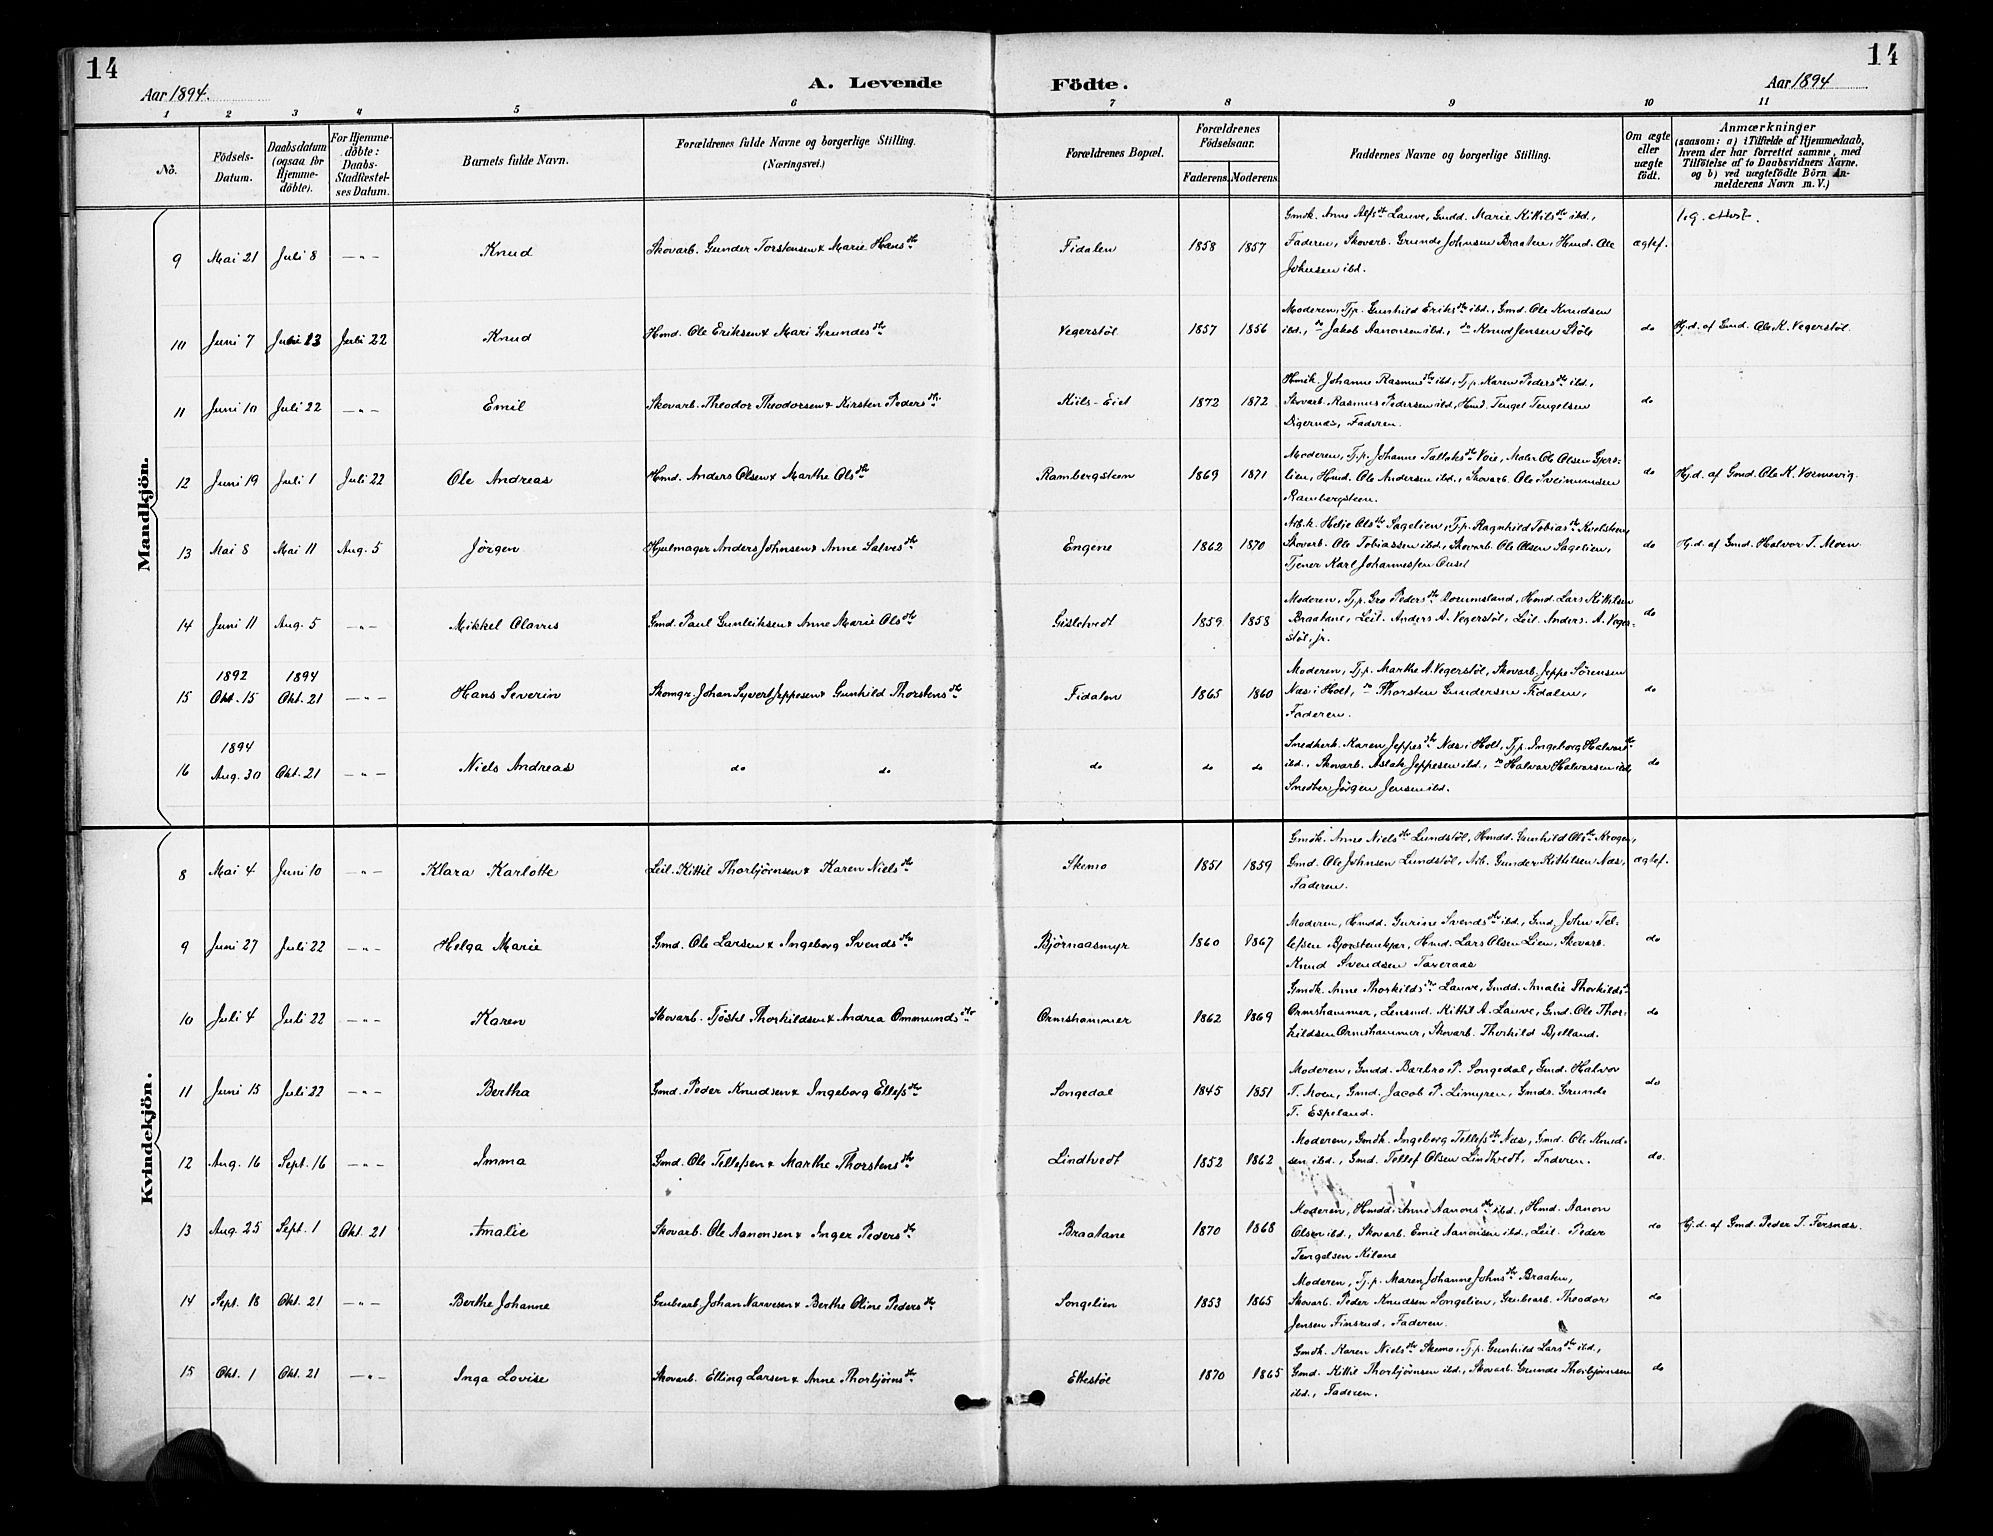 14
14
Aar 1894.
A. Levende
Födte.
Aar 1894
1 2 3 4 5 6 7 8 9 10 11
No.
Födsels-Datum.
Daabsdatum (ogsaa for Hjemme-döbte).
For Hjemme-döbte: Daabs-Stadfæstel-ses Datum.
Barnets fulde Navn.
Forældrenes fulde Navne og borgerlige Stilling. (Næringsvei.)
Forældrenes Bopæl.
Forældrenes Födselsaar.
Faderens. Moderens.
Faddernes Navne og borgerlige Stilling.
Om ægte eller uægte födt.
Anmærkninger
(saasom: a) i Tilfælde af Hjemmedaab, hvem der har forrettet samme, med Tilföielse af to Daabsvidners Navne, og b) ved uægtefödte Börn An-melderens Navn m. V.)
Mandkjön.
9 Mai 21 Juli 8 —"— Knud Skovarb. Gunder Torstensen & Marie Hansdtr Fidalen 1858 1857 Gmdk. Anne Alfsdtr Lauve, Gmdd. Marie Kittilsdtr ibd., Faderen, Skovarb. Grunde Johnsen Braaten, Hmd. Ole Johnsen ibd. ægtef.
10 Juni 7 Juni 13 Juli 22 Knud Hmd. Ole Eriksen & Mari Grundesdtr Vegerstøl 1857 1856 Moderen, Tj.p. Gunhild Eriksdtr ibd., Gmd. Ole Knudsen ibd., do Jakob Aanonsen ibd., do Knud Jensen Støle do Hj.d. af Gmd. Ole K. Vegerstøl.
11 Juni 10 Juli 22 —"— Emil Skovarb. Theodor Theodorsen & Kirsten Pedersdtr Kiils-Eiet 1872 1872 Hmdk. Johanne Rasmusdtr ibd., Tj.p. Karen Pedersdtr ibd., Skovarb. Rasmus Pedersen ibd, Hmd. Tengel Tengelsen Digernæs, Faderen. do
12 Juni 19 Juli 1 Juli 22 Ole Andreas Hmd. Anders Olsen & Marthe Olsdtr Rambergsteen 1869 1871 Moderen, Tj.p. Johanne Tallaksdtr Voie, Maler Ole Olsen Gjers-lien, Hmd. Ole Andersen ibd., Skovarb. Ole Sveinundsen Rambergsteen. do Hj.d. af Gmd. Ole K. Vormevig.
13 Mai 8 Mai 11 Aug. 5 Jørgen Hjulmager Anders Johnsen & Anne Salvesdtr Engene 1862 1870 Arb.k. Helje Olsdtr Sagelien, Tj.p. Ragnhild Tobiasdtr Kvelsteen, Skovarb. Ole Tobiassen ibd., Skovarb. Ole Olsen Sagelien, Tjener Karl Johannessen do Hj.d. af Gmd. Halvor T. Moen.
14 Juni 11 Aug. 5 —"— Mikkel Olavus Gmd. Paul Gunleiksen & Anne Marie Olsdtr Gisletvedt 1859 1858 Moderen, Tj.p. Gro Pedersdtr, Hmd. Lars Kittilsen Braatane, Leil. Anders A. Vegerstøl, Leil. Anders A. Veger-støl, jr. do
15 1892 Okt. 15 1894 Okt. 21 —"— Hans Severin Skomgr. Johan Syvert Jeppesen & Gunhild Thorstensdtr Fidalen 1865 1860 Moderen, Tj.p. Marthe A. Vegerstøl, Skovarb. Jeppe Sørensen Næs i Holt, do Thorsten Gundersen Fidalen, Faderen. do
16 1894 Aug. 30 Okt. 21 —"— Niels Andreas do do do do do Snedkerk. Karen Jeppesdtr Næs i Holt, Tj.p. Ingeborg Halvorsdtr ibd., Skovarb. Aslak Jeppesen ibd., do Halvor Halvorsen ibd, Snedker Jørgen Jensen ibd. do
Kvindekjön.
8 Mai 4 Juni 10 —"— Klara Karlotte Leil. Kittil Thorbjørnsen & Karen Nielsdtr Skemo 1851 1859 Gmdk. Anne Nielsdtr Lundstøl, Hmdd. Gunhild Olsdtr Krogen, Gmd. Ole Johnsen Lundstøl, Arb. Gunder Kittelsen Næs, Faderen. ægtef.
9 Juni 27 Juli 22 —"— Helga Marie Gmd. Ole Larsen & Ingeborg Svendsdtr Bjørnaasmyr 1860 1867 Moderen, Hmdd. Gurine Svendsdtr ibd., Gmd. John Tel-lefsen Bjorstemkjær, Hmd. Lars Olsen Lien, Skovarb. Knud Svendsen Taxeraas do
10 Juli 4 Juli 22 —"— Karen Skovarb. Tjøstel Thorkildsen & Andrea Ommundsdtr Ormshammer 1862 1869 Gmdk. Anne Thorkildsdtr Lauve, Gmdd. Amalie Thorkilds- Ormshammer, Lensmd. Kittil A. Lauve, Gmd. Ole Thor-kildsen Ormshammer, Skovarb. Thorkild Bjelland. do
11 Juni 15 Juli 22 —"— Bertha Gmd. Peder Knudsen & Ingeborg Ellefsdtr Songedal 1845 1851 Moderen, Gmdd. Barbro P. Songedal, Gmd. Halvor T. Moen, Gmd. Jacob P. Limyren, Gmds. Grunde T. Espeland. do
12 Aug. 16 Sept. 16 —"— Imma Gmd. Ole Tellefsen & Marthe Thorstensdtr Lindtvedt 1852 1862 Moderen, Gmdk. Ingeborg Tellefsdtr Næs, Gmd. Ole Knud-sen ibd., Gmd. Tellef Olsen Lindtvedt, Faderen. do.
13 Aug. 25 Sept. 1 Okt. 21 Amalie Skovarb. Ole Aanonsen & Inger Pedersdtr Braatane 1870 1868 Moderen, Hmdd. Anne Aanonsdtr ibd., Hmd. Aanon Olsen ibd., Skovarb. Emil Aanonsen ibd., Leil. Peder Tengelsen Kilane do Hj.d. af Gmd. Peder T. Fersnæs.
14 Sept. 18 Okt. 21 —"— Berthe Johanne Grubearb. Johan Narvesen & Berthe Oline Pedersdtr Songelien 1853 1865 Moderen, Tj.p. Maren Johanne Johnsdtr Braaten, Skovarb. Peder Knudsen Songelien, Grubearb. Theodor Jensen Finsrud, Faderen. do
15 Okt. 1 Okt. 21 —"— Inga Lovise Skovarb. Elling Larsen & Anne Thorbjørnsdtr Ettestøl 1870 1865 Gmdk. Karen Nielsdtr Skemo, Tj.p. Gunhild Larsdtr ibd., Gmd. Kittil Thorbjørnsen ibd., Skovarb. Grunde Thorbjørnsen ibd., Faderen. do